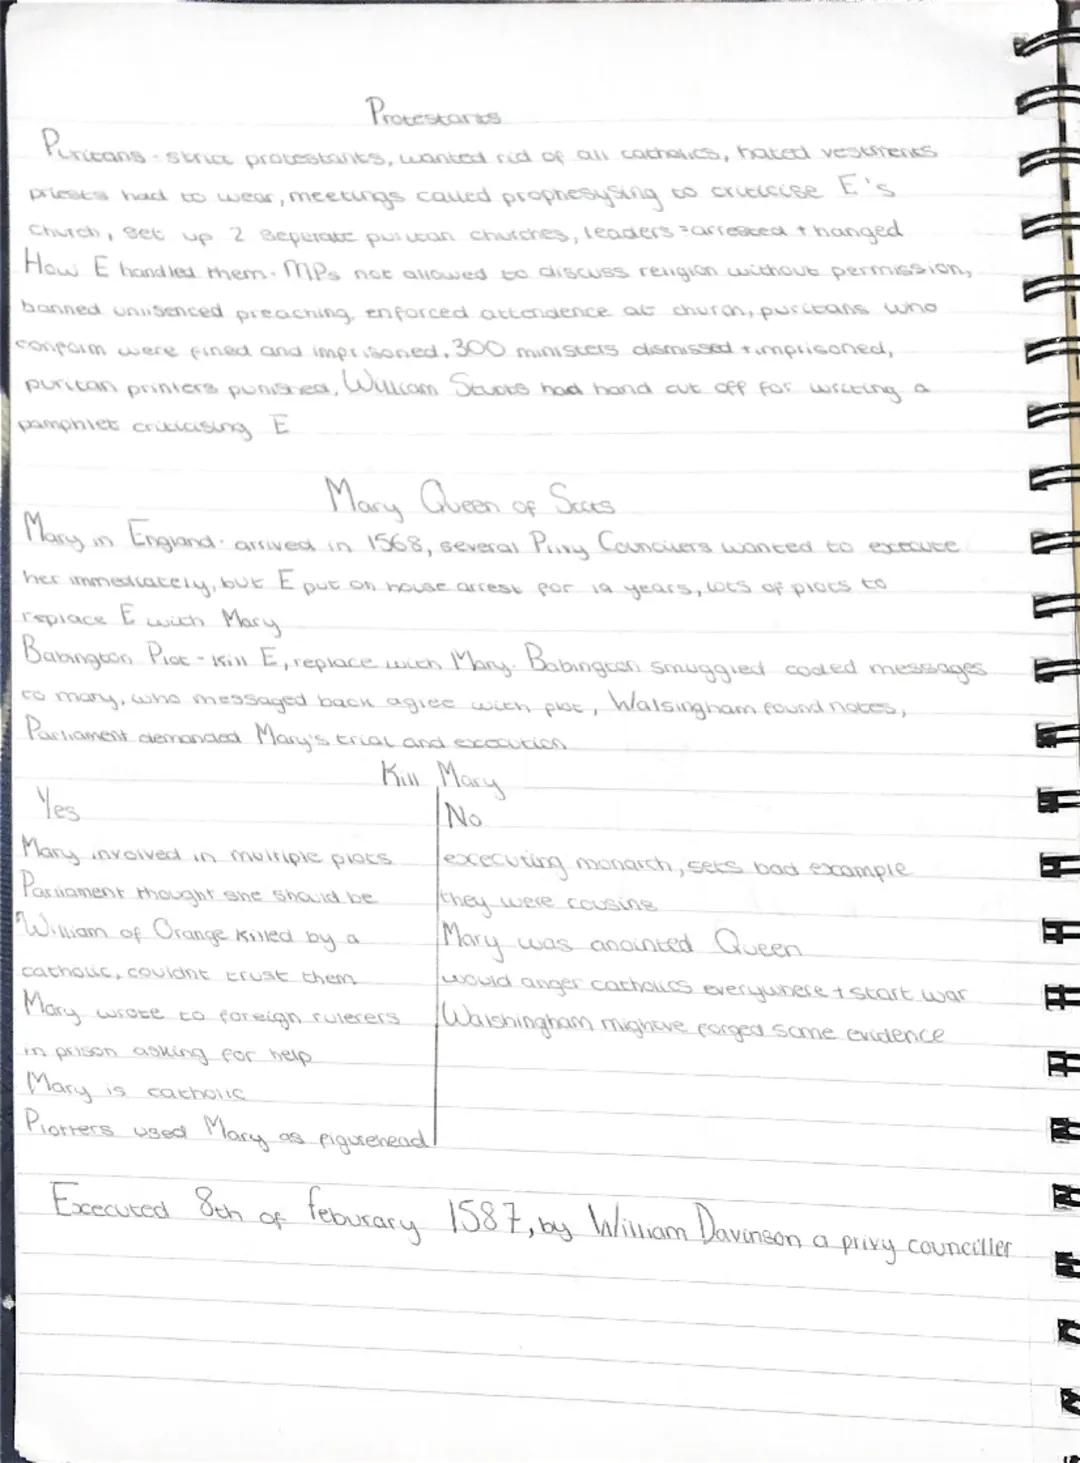 Protestants
Puritans - strict protestants, wanted rid of all catholics, hated vestments
priests had to wear, meetings called prophesysing to criticise E's
church, set up 2 seperate puritan churches, leaders = arrested + hanged
How E handled them - MPs not allowed to discuss religion without permission,
banned unlisenced preaching, enforced attendence at church, puritans who
conform were fined and imprisoned, 300 ministers dismissed + imprisoned,
puritan printers punished, William Stubbs had hand cut off for writing a
pamphlet criticising E
Mary Queen of Scots
Mary in England - arrived in 1568, several Privy Councilers wanted to execute
her immediately, but E put on house arrest for 19 years, lots of plots to
replace E with Mary
Babington Plot - kill E, replace with Mary. Babington smuggled coded messages
to mary, who messaged back agree with plot, Walsingham found notes,
Parliament demanded Mary's trial and execution
Kill Mary
Yes
No
Mary involved in multiple plots
Parliament thought she should be
William of Orange killed by a
catholic, couldnt trust them
Mary wrote to foreign rulerers
in prison asking for help
Mary is catholic
Plotters used Mary as figurehead
executing monarch, sets bad example
they were cousins
Mary was anointed Queen
would anger catholics everywhere + start war
Walshingham mighave forged some evidence
Executed 8th of feburary 1587, by William Davinson a privy counciller